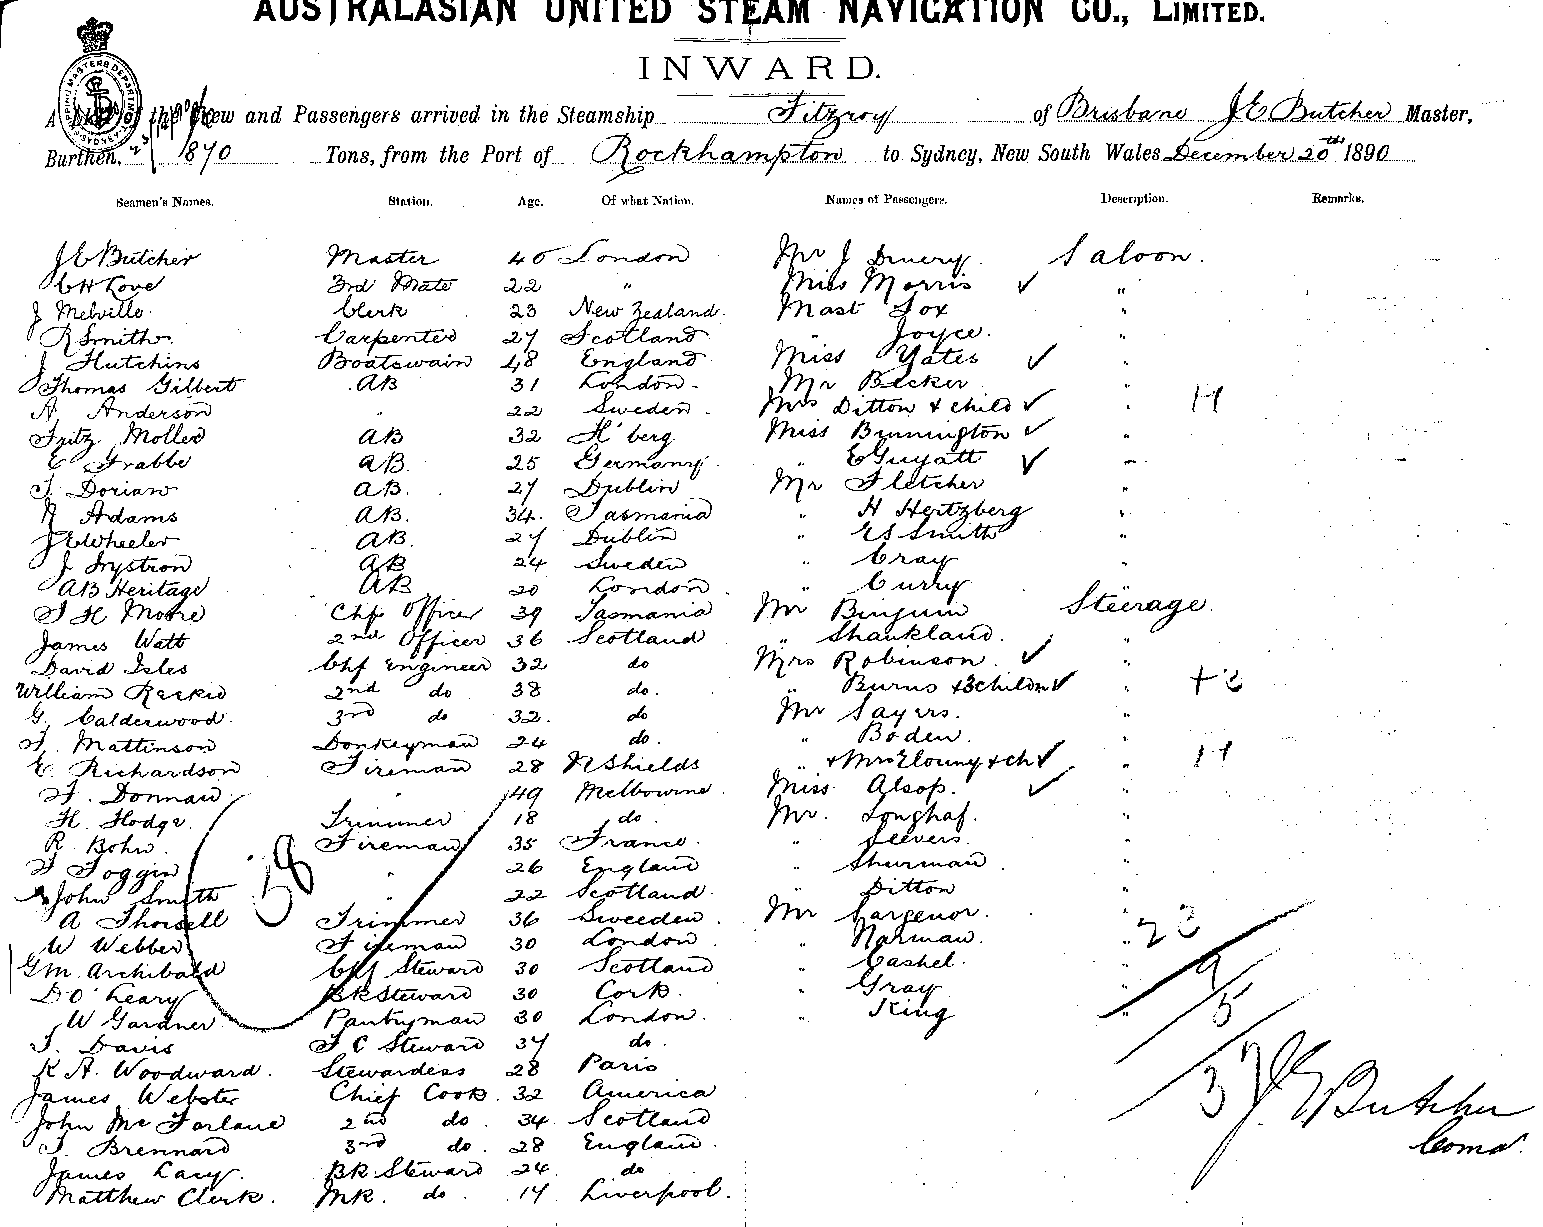 AUSTRALASIAN UNITED STEAM NAVIGATION CO., LIMITED.
INWARD.
A List of the Crew and Passengers arrived in the Steamship Fitzroy of Brisbane J E Butcher Master,
Burthen, 1870 Tons, from the Port of Rockhampton to Sydney, New South Wales December 20th 1890
Seamen's Names. Station. Age. Of what Nation. Names of Passengers. Description. Remarks.
J E Butcher Master 40 London Mr J Druery Saloon.
C H Love 3rd Mate 22 " Miss Morris ✓ "
J Melville Clerk 23 New Zealand Mast Fox "
R Smith Carpenter 27 Scotland " Joyce "
J Hutchins Boatswain 48 England Miss Yates ✓ "
Thomas Gilbert AB 31 London Mr Becker "
A Anderson " 22 Sweden Mrs Ditton + child ✓ "
Fritz Moller AB 32 H'berg Miss Binnington ✓ "
E Frabbe AB. 25 Germany " E Guyatt ✓ "
T. Dorian AB. 27 Dublin Mr Fletcher "
Adams AB. 34 Tasmania " H Hertzberg "
J E Wheeler AB. 27 Dublin " Smith "
J Nystrom AB 24 Sweden " Cray "
AB Heritage AB 20 London " Curry "
H Moore Chf Officer 39 Tasmania Mr Steerage
James Watt 2nd Officer 36 Scotland " Shankland "
David Isles Chf Engineer 32 do Mrs Robinson ✓ "
William 2nd do 38 do. " Burns + 3 childn ✓ " +2
G. Calderwood 3rd do 32. do Mr Sayers. "
Mattinson Donkeyman 24 do. " Boden "
E. Richardson Fireman 28 N Shields " + Mrs + ch ✓ "
Donnan " 49 Melbourne Miss Alsop. ✓ "
H. Hodge Trimmer 18 do. Mr. "
R. Bohn Fireman 35 France " Seevers "
Foggin " 26 England " Shurman "
John Smith " 22 Scotland " Ditton "
A Thorsell Trimmer 36 Sweeden Mr "
W Webber Fireman 30 London " Narman " 23
G M. Archibald Chf Steward 30 Scotland " Cashel. " 9
D O'Leary BkSteward 30 Cork " Gray " 5
W Gardner Pantryman 30 London. " King "
Davis F C Steward 37 do.
K A. Woodward. Stewardess 28 Paris
James Webster Chief Cook. 32 America 37 J E Butcher
John McFarlane 2nd do. 34 Scotland Comd.
Brennard 3rd do. 28 England
James Lacy Bk Steward 24 do
Matthew Clerk. Mk. do 17 Liverpool.
58